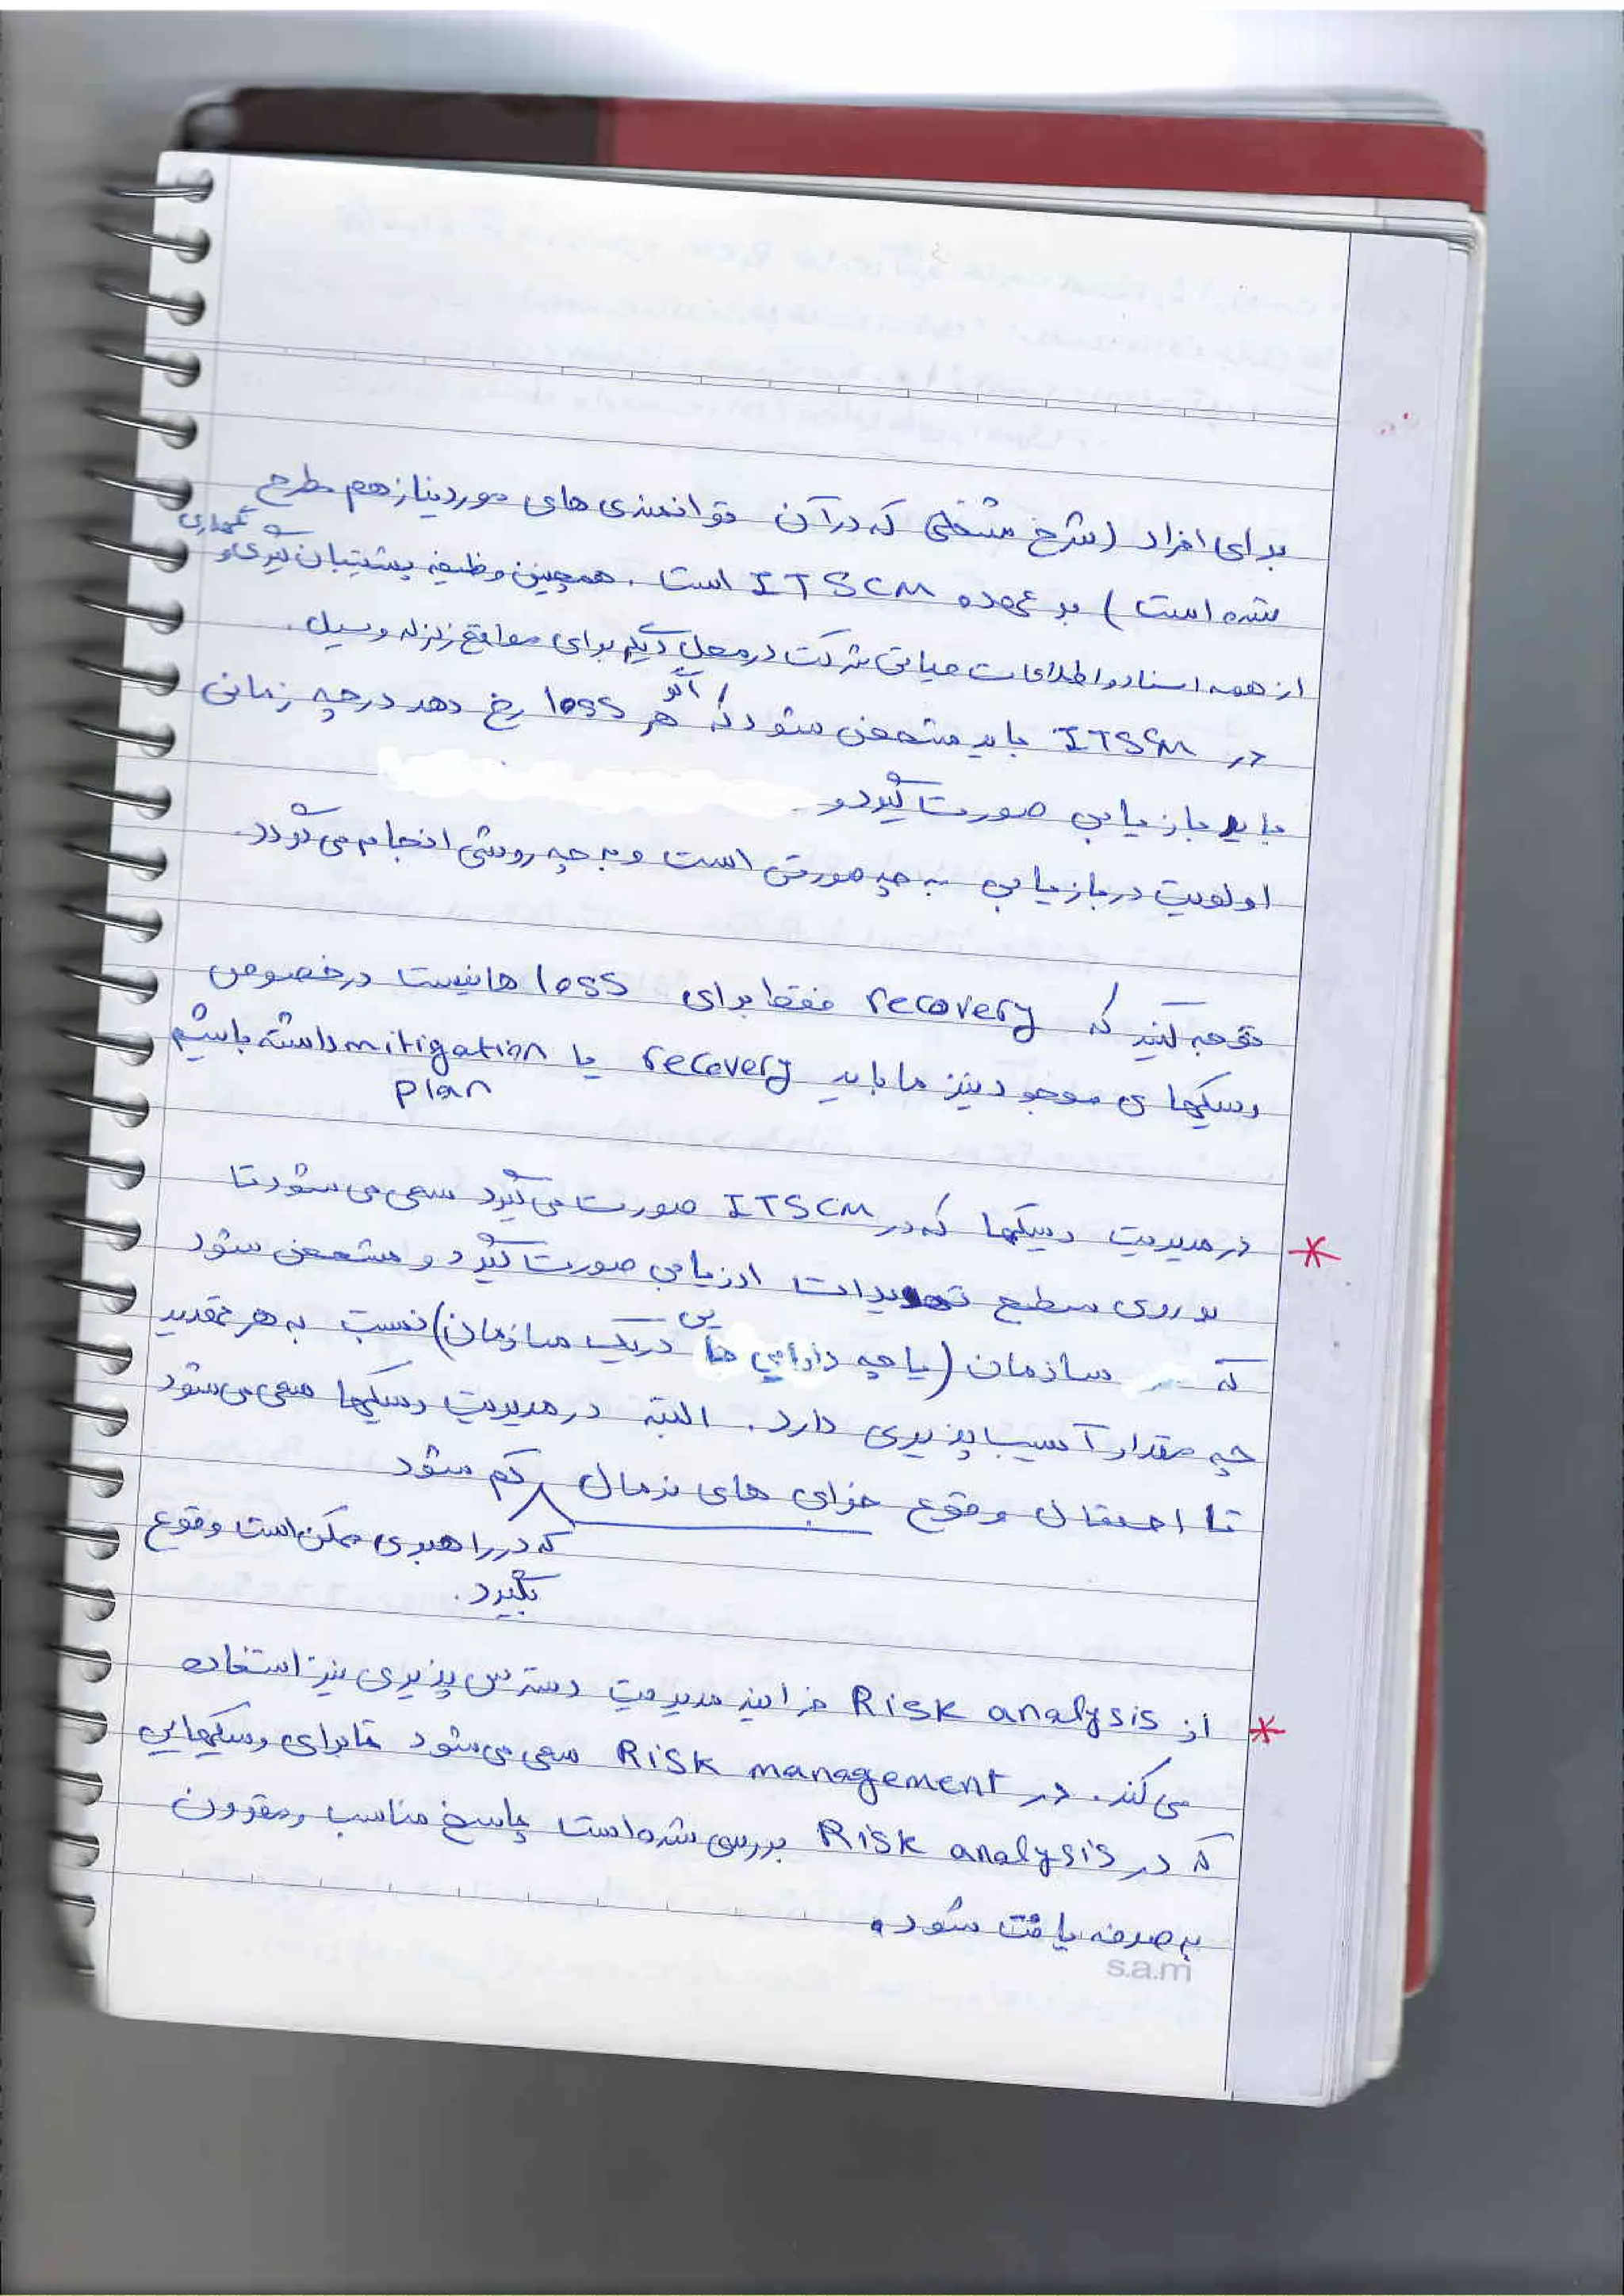 برای افراد (شرح شغلی که در آن توانمندی های مورد نیاز هم مطرح
شده است) بر عهده ITSCM است. همچنین وظیفه پشتیبان گیری و نگهداری
از همه اسناد و اطلاعات حیاتی شرکت در محل دیگر برای مواقع زلزله و سیل.
در ITSCM باید مشخص شود که اگر هر loss رخ دهد در چه زمانی
باید بازیابی صورت گیرد و
اولویت در بازیابی به چه صورتی است و به چه روشی انجام می گردد.
توجه کنید که recovery فقط برای loss ها نیست در خصوص
ریسکهای موجود نیز ما باید recovery یا mitigation داشته باشیم
plan
* در مدیریت ریسکها که در ITSCM صورت می گیرد سعی می شود تا
بر روی سطح تهدیدات ارزیابی صورت گیرد و مشخص شود
که سازمان (یا چه دارایی هایی در یک سازمان) نسبت به هر تهدید
چه مقدار آسیب پذیری دارد. البته در مدیریت ریسکها سعی می شود
تا احتمال وقوع خرابی های نرمال کم شود
که در راهبری ممکن است وقوع
بگیرد.
* از Risk analysis فرایند مدیریت دسترس پذیری نیز استفاده
می کند. در Risk management سعی می شود تا برای ریسکهایی
که در Risk analysis بررسی شده است پاسخ مناسب و مقرون
به صرفه یافت شود.
s.a.m